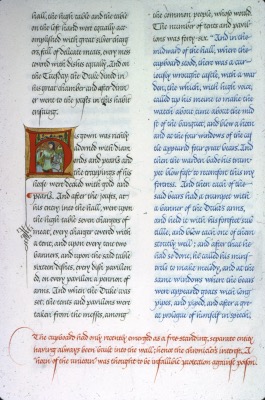 hall, the high table and the table
on the left hand were equally ac-
complished with great silver charg-
ers, full of delicate meats, every mess
covered with dishes equally. And on
the Tuesday the Duke dined in
his great chamber and after dinn-
er went to the jousts in this habit
ensuing.
His gown was nobly
adorned with diam-
onds and pearls and
the trappings of his
horse were decked with gold and
pearls. And after the jousts, at
his entry into the hall, were upon
the high table seven chargers of
meat, every charger covered with
a tent, and upon every tent two
banners, and upon the said table
sixteen dishes, every dish pavilion-
ed, on every pavilion a pennon of
arms. And when the Duke was
set, the tents and pavilions were
taken from the messes, among
the common people, who so would.
The number of tents and pavil-
ions was forty-six. And in the
midward of the hall, where the
cupboard stood, there was a cur-
iously wrought castle, with a war-
den, the which, with high voice,
called up his means to make the
watch about time about the mid
of the banquet, and blew a horn
and at the four windows of the cas-
tle appeared four great bears. And
then the warden bade his trump-
ets blow fast to recomfort this my
fortress. And then each of the
said bears had a trumpet with
a banner of the Duke's arms,
and held it with his forefeet sub-
tilly, and blew each one of them
strictly well; and after that he
had so done, he called his minst-
rels to make melody, and at the
same windows where the bears
were appeared goats with long
pipes, and piped, and after a gre-
at praise of himself in speech,
The cupboard had only recently emerged as a free-standing, separate entity,
having always been built into the wall; hence the chronicler's interest. A
"horn of the unicorn" was thought to be infallible protection against poison.